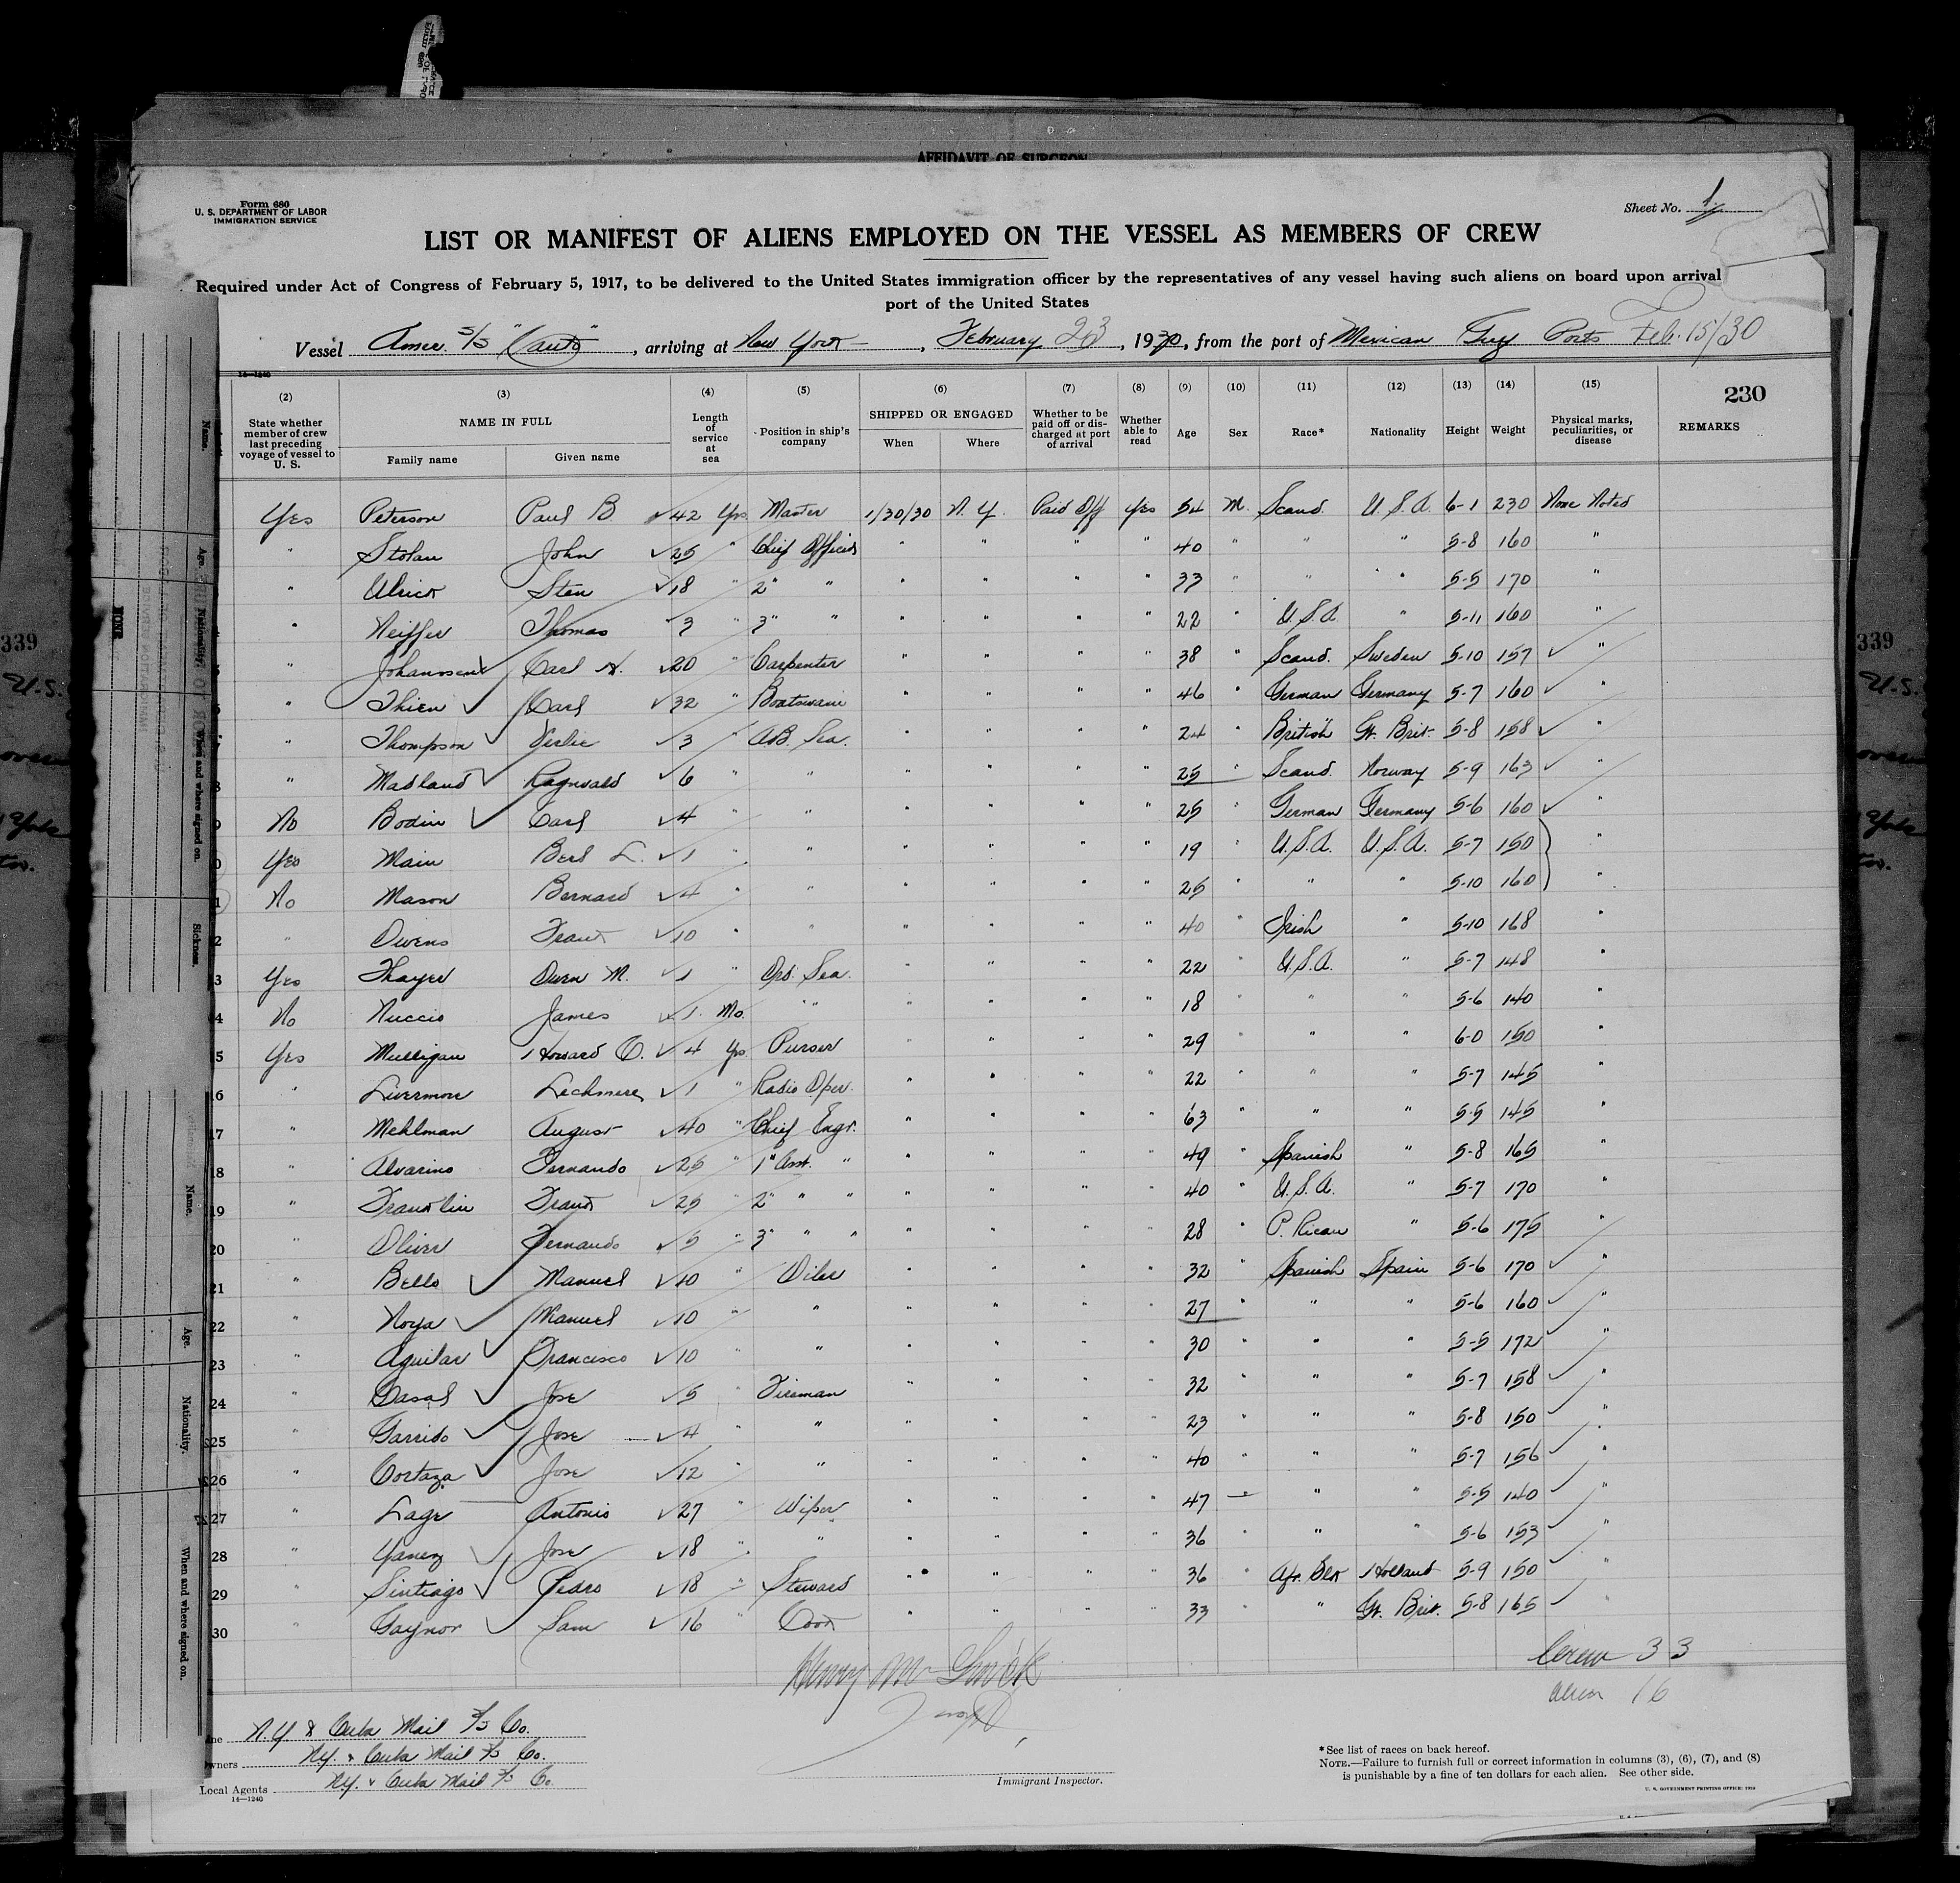 AFFIDAVIT OF SURGEON
Form 680
U. S. DEPARTMENT OF LABOR
IMMIGRATION SERVICE
Sheet No. 1
LIST OR MANIFEST OF ALIENS EMPLOYED ON THE VESSEL AS MEMBERS OF CREW
Required under Act of Congress of February 5, 1917, to be delivered to the United States immigration officer by the representatives of any vessel having such aliens on board upon arrival
port of the United States
Vessel Amer. S/S "Cauto", arriving at New York, February 23, 1930, from the port of Mexican Ports Feb. 15/30
14—1240
(2) (3) (4) (5) (6) (7) (8) (9) (10) (11) (12) (13) (14) (15) 230
State whether member of crew last preceding voyage of vessel to U. S. NAME IN FULL Family name Given name Length of service at sea Position in ship's company SHIPPED OR ENGAGED When Where Whether to be paid off or discharged at port of arrival Whether able to read Age Sex Race* Nationality Height Weight Physical marks, peculiarities, or disease REMARKS
Yes Peterson Paul B. 42 Yrs. Master 1/30/30 N. Y. Paid Off Yes 54 M. Scand. U.S.A. 6-1 230 None Noted
" Stolan John 25 " Chief Officer " " " " 40 " " " 5-8 160 "
" Ulrick Sten 18 " 2" " " " " " 33 " " " 5-5 170 "
" Neiffer Thomas 3 " 3" " " " " " 22 " U.S.A. " 5-11 160 "
" Johanssen Carl A. 20 " Carpenter " " " " 38 " Scand. Sweden 5-10 157 "
" Thien Carl 32 " Boatswain " " " " 46 " German Germany 5-7 160 "
" Thompson 3 " A.B. Sea. " " " " 24 " British Gt. Brit. 5-8 158 "
8 " Madland Ragnvald 6 " " " " " " 25 " Scand. Norway 5-9 163 "
No Bodin Carl 4 " " " " " " 25 " German Germany 5-6 160 "
Yes Main Berl L. 1 " " " " " " 19 " U.S.A. U.S.A. 5-7 150 "
1 No Mason Bernard 4 " " " " " " 25 " " " 5-10 160 "
2 " Owens Frank 10 " " " " " " 40 " Irish " 5-10 168 "
3 Yes Thayer Owen M. 1 " Ord. Sea. " " " " 22 " U.S.A. " 5-7 148 "
4 No Nuccio James 1 Mo. " " " " " " 18 " " " 5-6 140 "
5 Yes Mulligan Howard O. 4 Yrs Purser " " " " 29 " " " 6-0 150 "
16 " Livermore Lechmere 1 " Radio Oper. " " " " 22 " " " 5-7 145 "
17 " Mehlman August 40 " Chief Engr. " " " " 63 " " " 5-5 145 "
18 " Alvarino Fernando 25 " 1" Asst. " " " " " 49 " Spanish " 5-8 165 "
19 " Franklin Frank 25 " 2" " " " " " " 40 " U.S.A. " 5-7 170 "
20 " Oliver Fernando 5 " 3" " " " " " " 28 " P. Rican " 5-6 175 "
21 " Bello Manuel 10 " Oiler " " " " 32 " Spanish Spain 5-6 170 "
22 " Noya Manuel 10 " " " " " " 27 " " " 5-6 160 "
23 " Aguilar Francisco 10 " " " " " " 30 " " " 5-5 172 "
24 " Casal Jose 5 " Fireman " " " " 32 " " " 5-7 158 "
25 " Garrido Jose 4 " " " " " " 23 " " " 5-8 150 "
26 " Cortaza Jose 12 " " " " " " 40 " " " 5-7 156 "
27 " Lage Antonio 27 " Wiper " " " " 47 " " " 5-5 140 "
28 " Yanez Jose 18 " " " " " " 36 " " " 5-6 153 "
29 " Sintiago Pedro 18 " Steward " " " " 36 " Afr. Blk Holland 5-9 150 "
30 " Gaynor Sam 16 " Cook " " " " 33 " " Gt. Brit. 5-8 165 "
Crew 33
Alien 16
N.Y & Cuba Mail S/S Co.
N.Y. & Cuba Mail S/S Co.
Local Agents N.Y. & Cuba Mail S/S Co.
14—1240
Immigrant Inspector.
*See list of races on back hereof.
NOTE.—Failure to furnish full or correct information in columns (3), (6), (7), and (8)
is punishable by a fine of ten dollars for each alien. See other side.
Name.
Age.
Nationality.
When and where signed on.
Sickness.
Name.
Age.
Nationality.
When and where signed on.
339
U.S.
339
U.S.